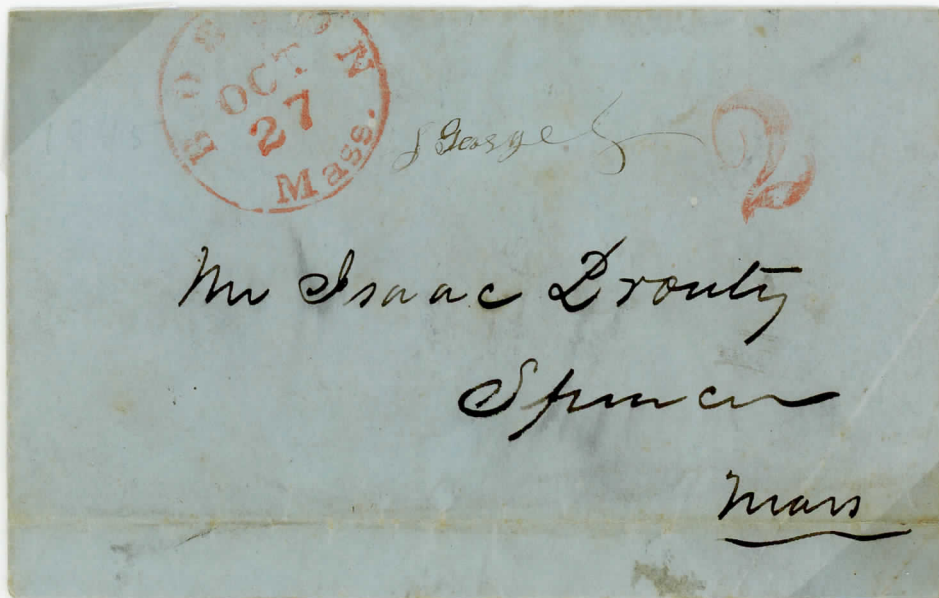 BOSTON
OCT
27
Mass.
George
2
Mr Isaac Prouty
Spencer
Mass